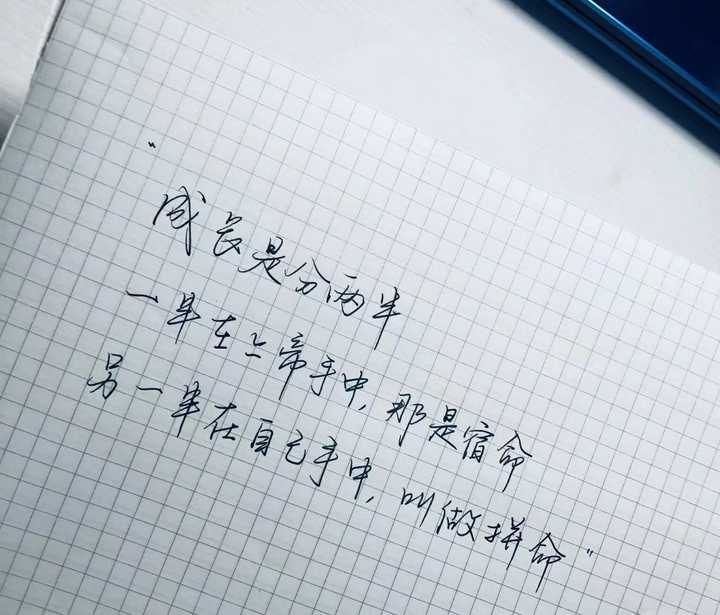 "成长是分两半
一半在上帝手中,那是宿命
另一半在自己手中,叫做拼命"